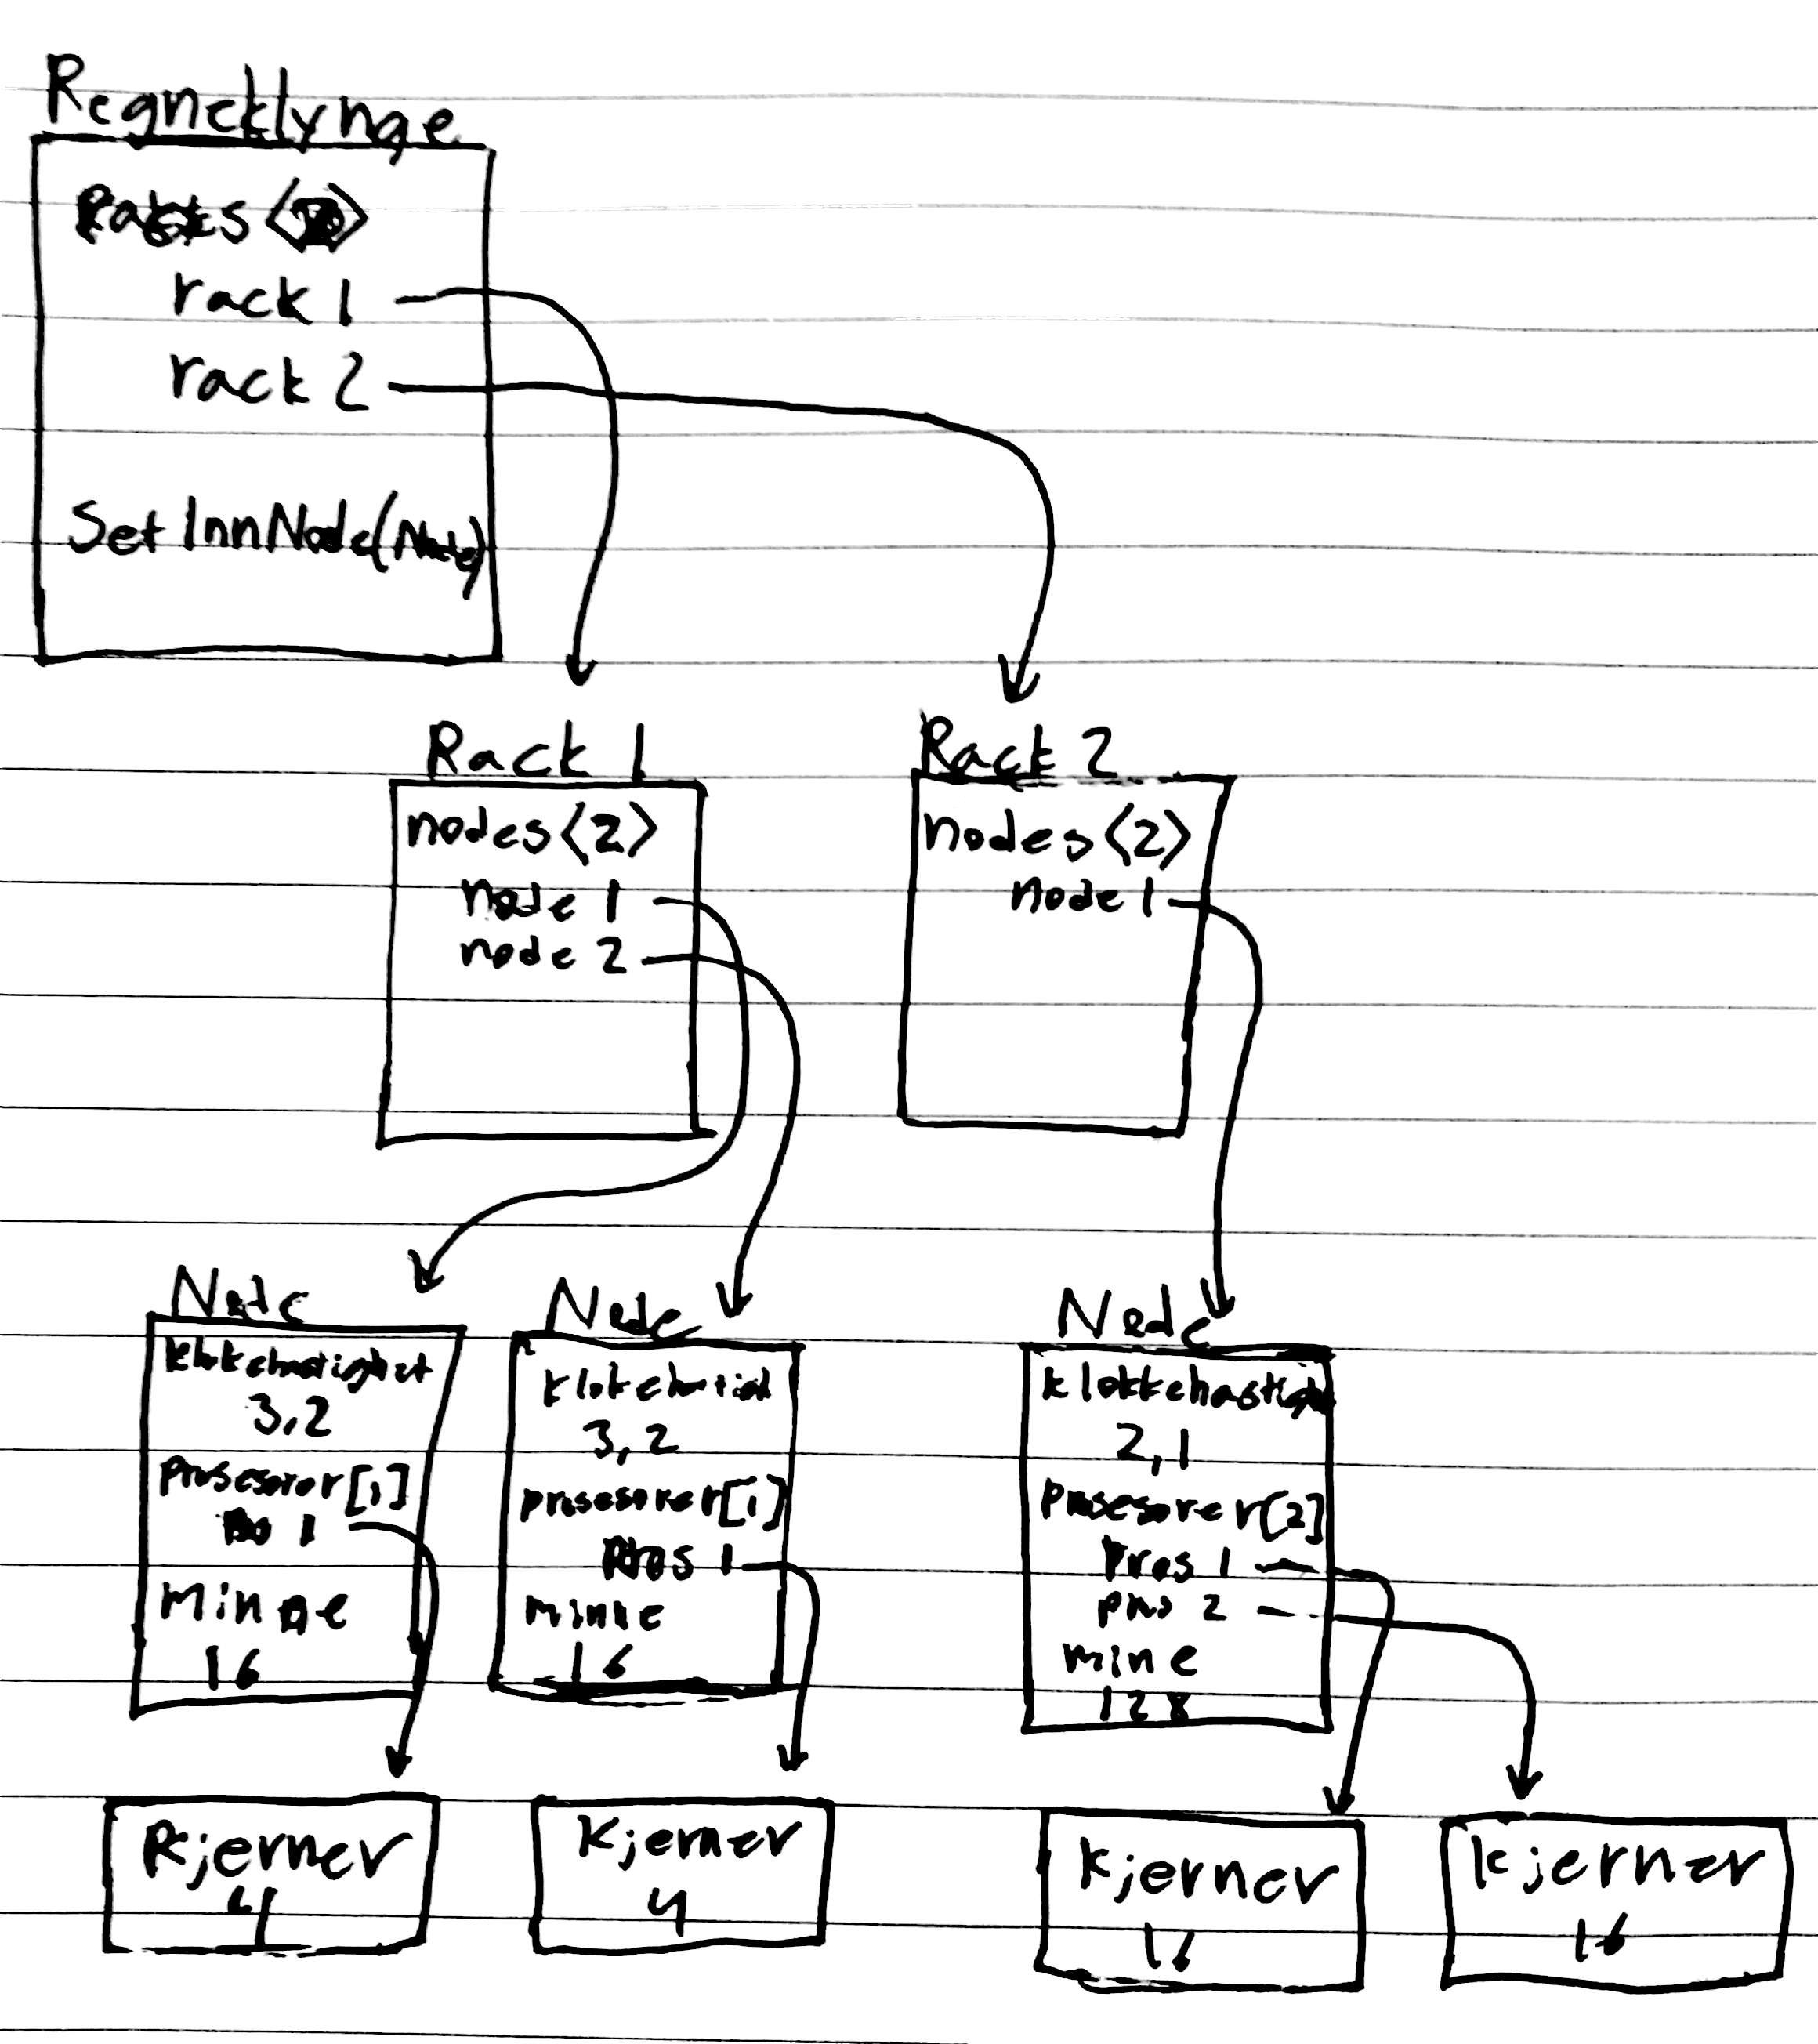 Regneklynge
Racks < >
rack 1
rack 2
SetInnNode(Node)
Rack 1
nodes <2>
node 1
node 2
Rack 2
nodes <2>
node 1
Node
klokkehastighet
3,2
prosesorer[1]
1
Minne
16
Node
klokehastigh
3,2
prosesorer[1]
Pros 1
minne
16
Node
klokkehastigh
2,1
prosesorer[2]
Pros 1
pros 2
mine
128
Kjerner
4
Kjerner
4
Kjerner
16
kjerner
16